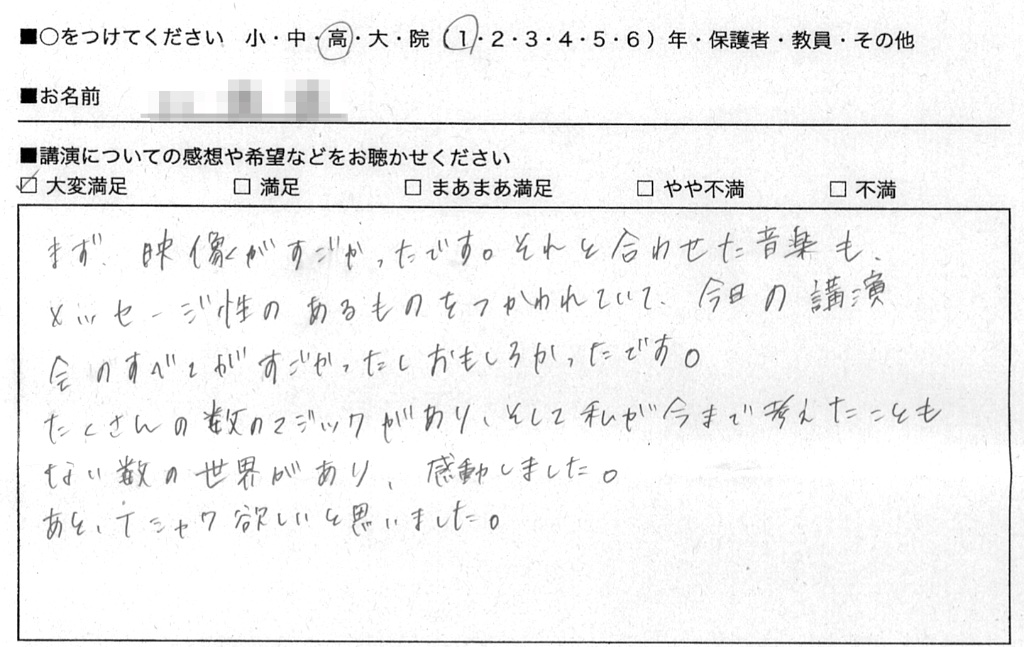 ■○をつけてください 小・中・高・大・院（1・2・3・4・5・6）年・保護者・教員・その他
■お名前
■講演についての感想や希望などをお聴かせください
☑ 大変満足 □ 満足 □ まあまあ満足 □ やや不満 □ 不満
まず、映像がすごかったです。それと合わせた音楽も、
メッセージ性のあるものをつかわれていて、今日の講演
会のすべてがすごかったしおもしろかったです。
たくさんの数のマジックがあり、そして私が今まで考えたことも
ない数の世界があり、感動しました。
あと、Tシャツ欲しいと思いました。